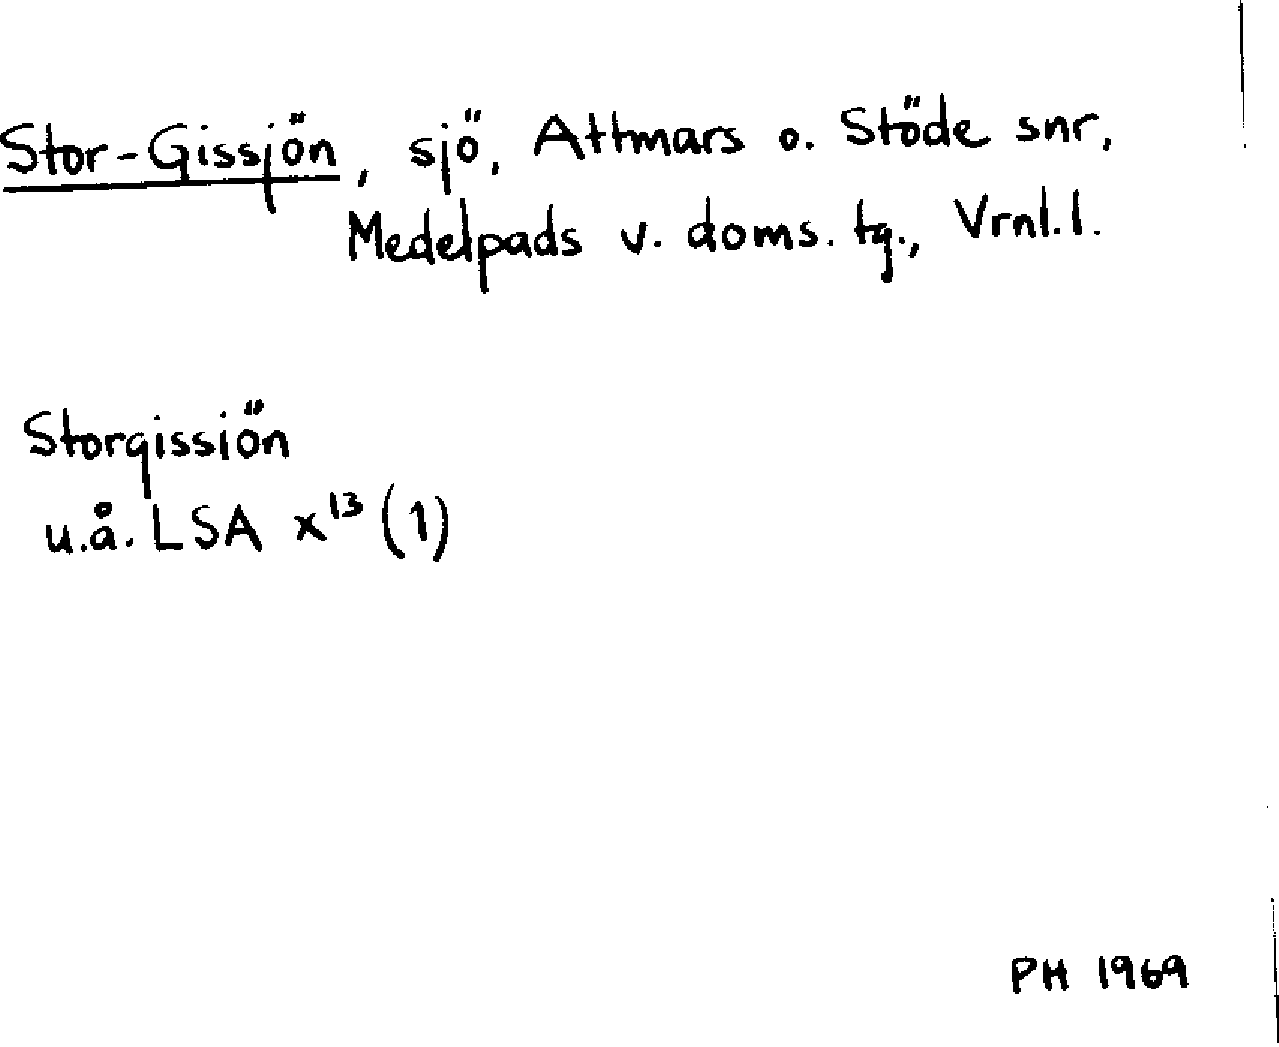 Stor-Gissjön, sjö, Attmars o. Stöde snr,
Medelpads v. doms. tg., Vrnl. l.
Storgissiön
u.å. LSA x¹³ (1)
PH 1969